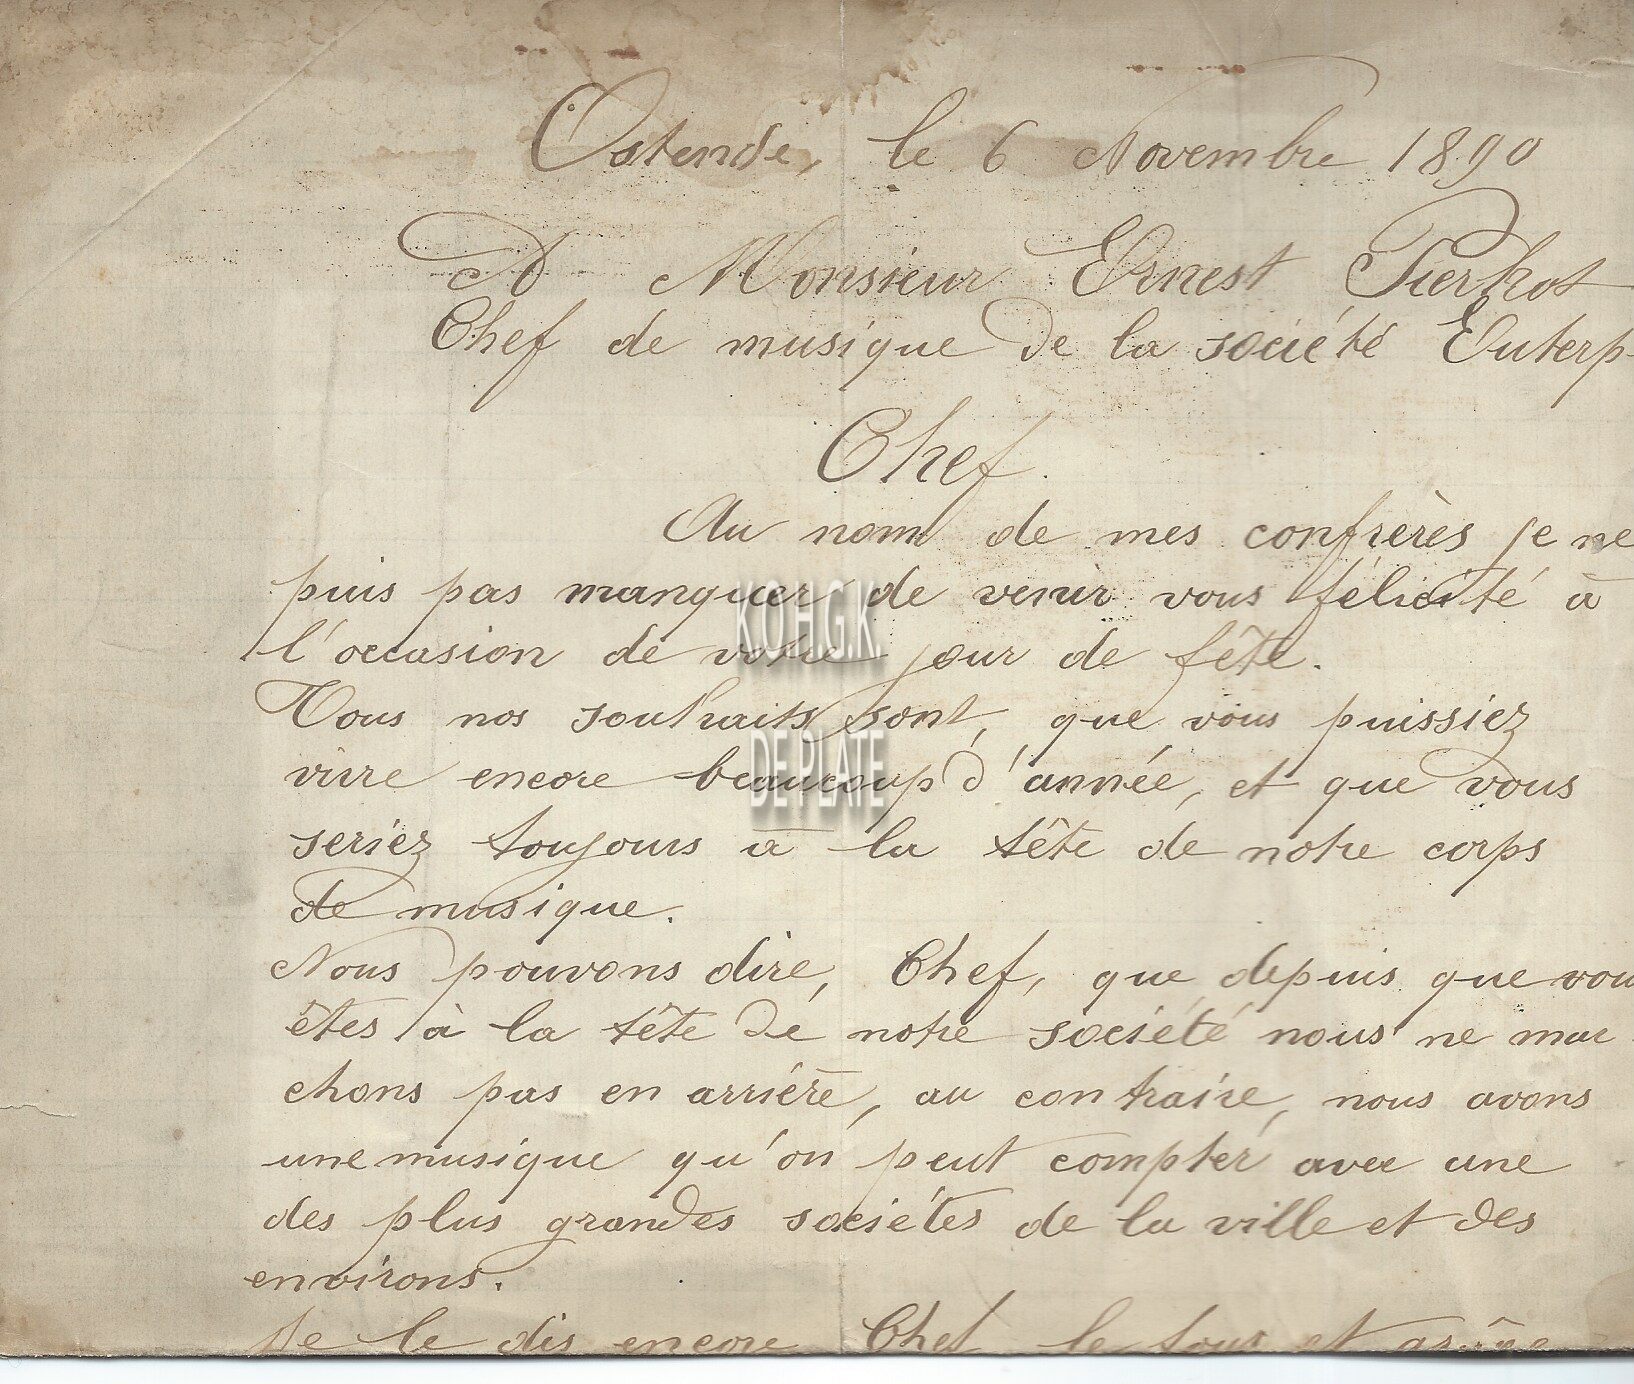 Ostende, le 6 Novembre 1890
A Monsieur Ernest Pierkot
Chef de musique de la société Euterp
Chef.
Au nom de mes confrères je ne
puis pas manquer de venir vous félicité à
l'occasion de votre jour de fête.
Tous nos souhaits sont, que vous puissiez
vivre encore beaucoup d'année, et que vous
seriez toujours à la tête de notre corps
de musique.
Nous pouvons dire, Chef, que depuis que vou
êtes à la tête de notre société nous ne mar
chons pas en arrière, au contraire, nous avons
une musique qu'on peut compter avec une
des plus grandes sociétés de la ville et des
environs.
Je le dis encore Chef le
K.O.H.G.K.
DE PLATE